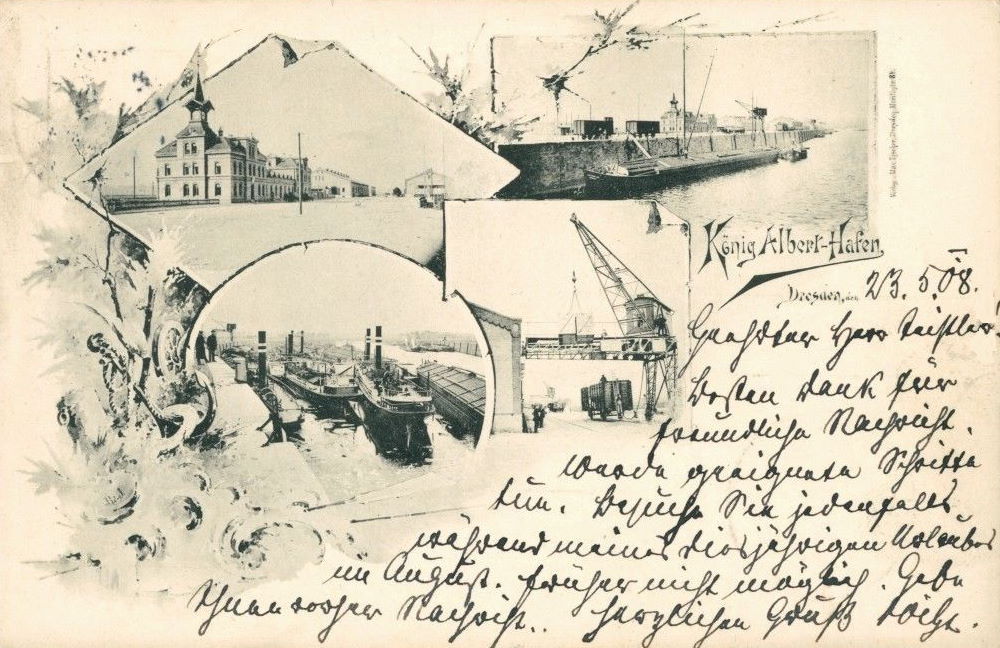 Verlag: Max Fischer, Dresden, Marthastr.
König Albert-Hafen,
Dresden, den 23. 5. 08.
Geehrter Herr Teistler!
Besten Dank für
freundliche Nachricht.
Werde geeignete Schritte
tun. Besuche Sie jedenfalls
während meines diesjährigen Urlaubes
im August. Früher nicht möglich. Gebe
Ihnen vorher Nachricht. Herzlichen Gruß